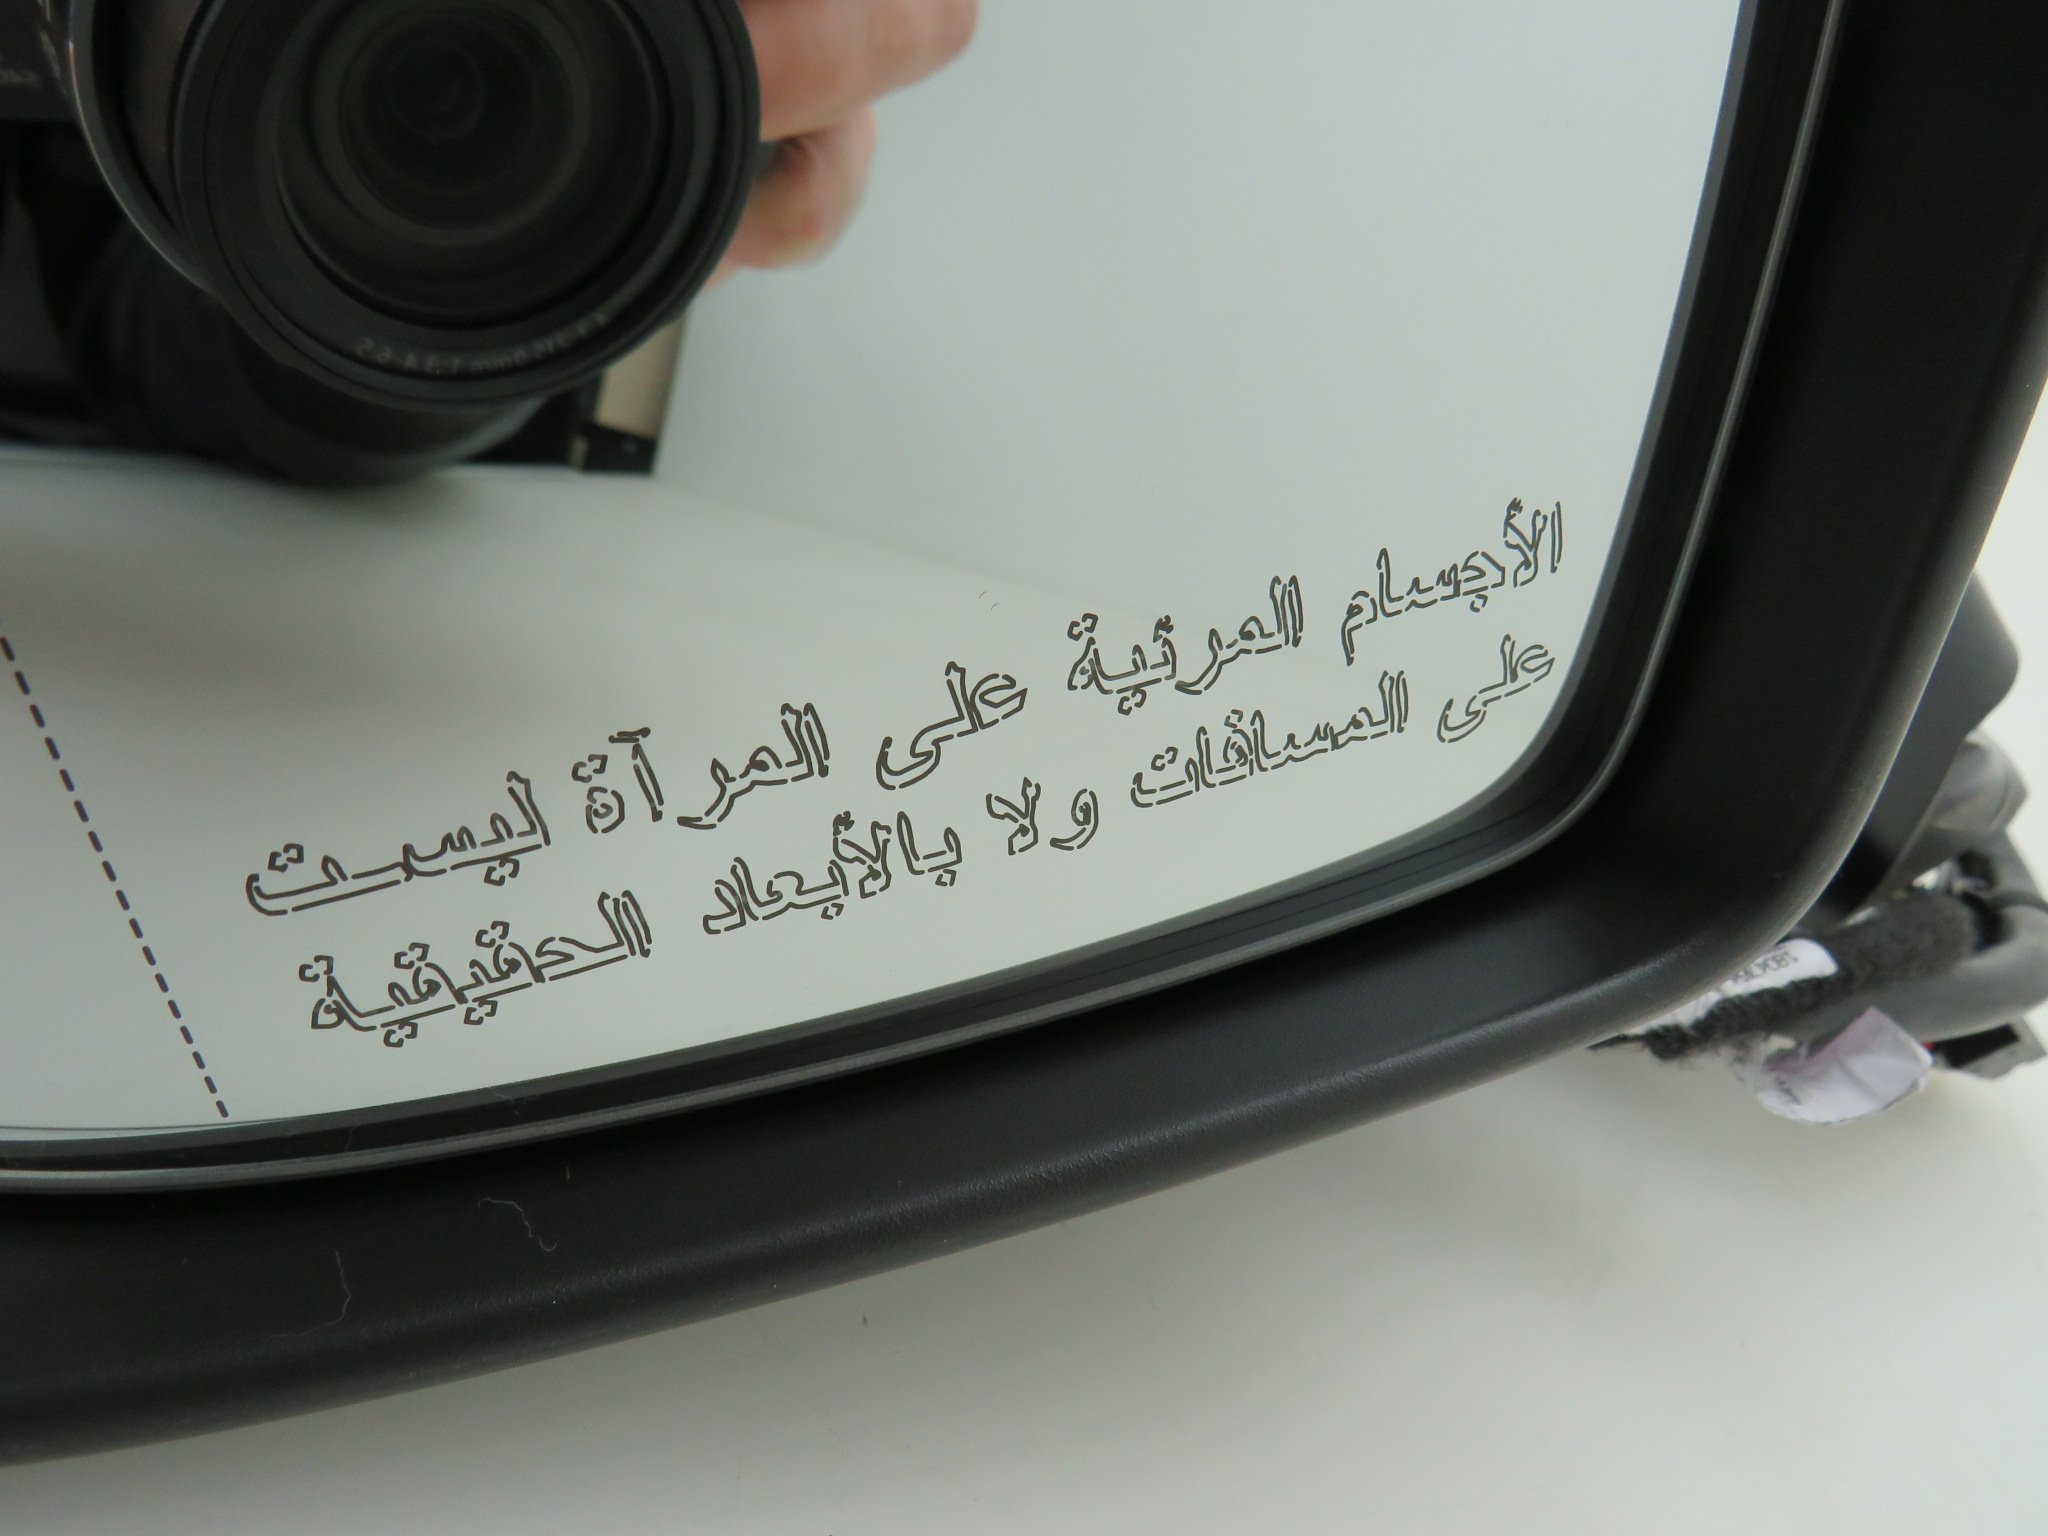 الأجسام المرئية على المرآة ليست
على المسافات ولا بالأبعاد الحقيقية